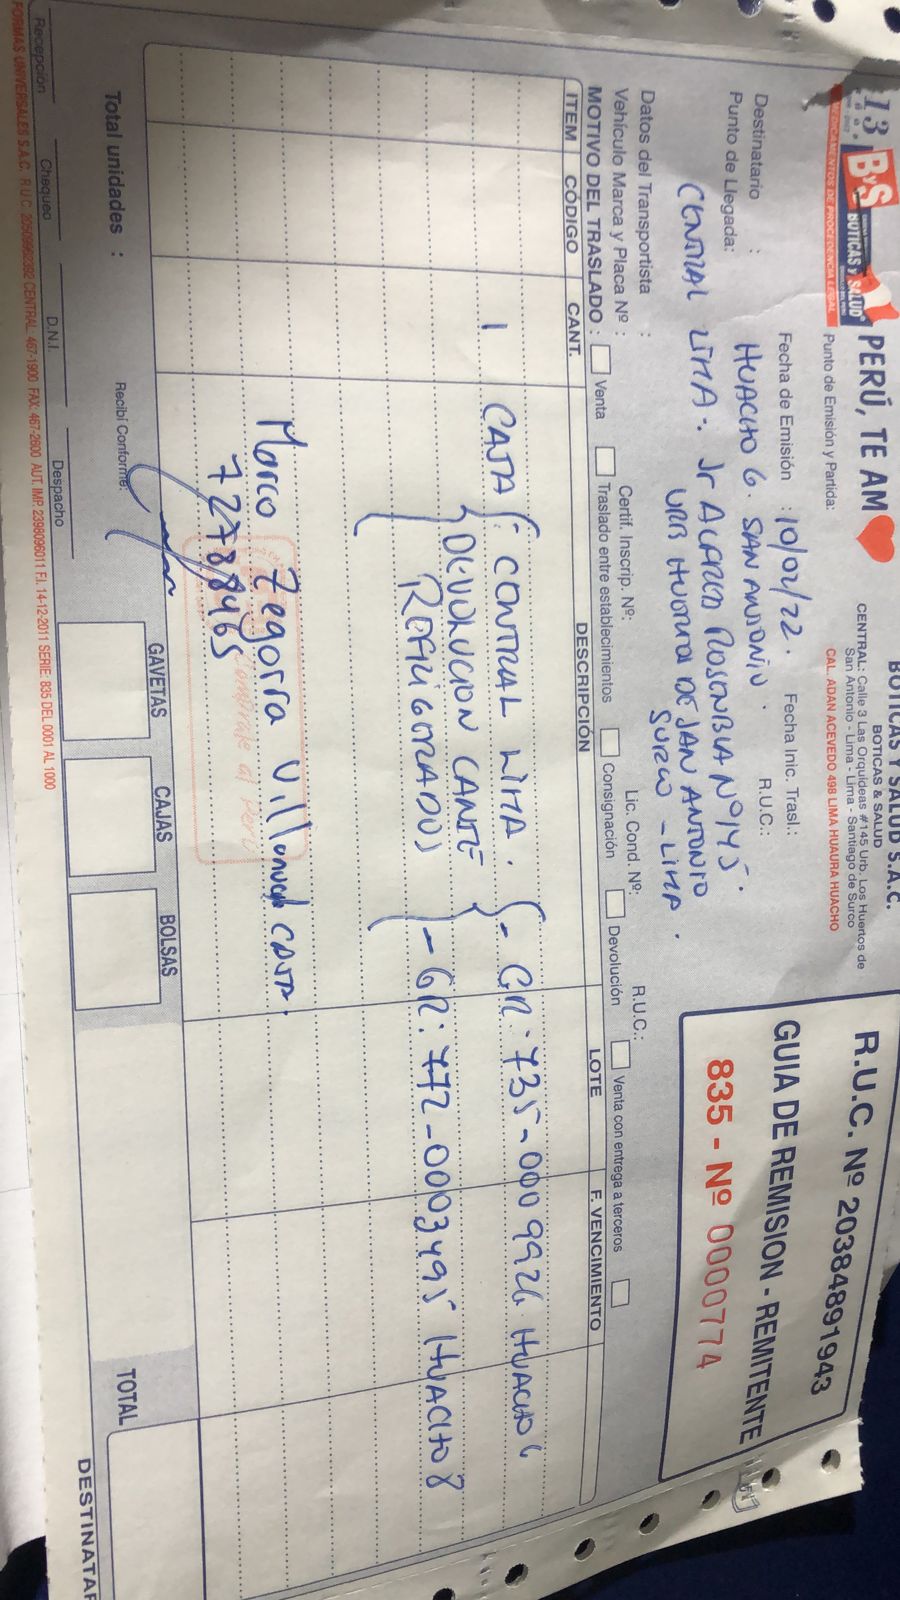 BOTICAS Y SALUD S.A.C.
BOTICAS & SALUD
CENTRAL: Calle 3 Las Orquideas #145 Urb. Los Huertos de
San Antonio - Lima - Lima - Santiago de Surco
CAL. ADAN ACEVEDO 498 LIMA HUAURA HUACHO
13
ByS
BOTICAS y SALUD
MEDICAMENTOS DE PROCEDENCIA LEGAL
PERÚ, TE AM
R.U.C. Nº 20384891943
GUIA DE REMISION - REMITENTE
835 - Nº 0000774
Punto de Emisión y Partida:
Fecha de Emisión : 10/02/22. Fecha Inic. Trasl.:
Destinatario : HUACHO 6. SAN ANTONIO. R.U.C.:
Punto de Llegada:
CENTRAL LIMA: Jr ALFREDO Nº 145.
URB HUERTOS DE SAN ANTONIO
SURCO - LIMA.
Datos del Transportista : R.U.C.:
Vehículo Marca y Placa Nº : Certif. Inscrip. Nº: Lic. Cond. Nº:
MOTIVO DEL TRASLADO : Venta Traslado entre establecimientos Consignación Devolución Venta con entrega a terceros
ITEM CÓDIGO CANT. DESCRIPCIÓN LOTE F. VENCIMIENTO
1 CAJA : CENTRAL LIMA. - GR: 735-0009926 HUACHO 6
DEVOLUCION CANJE
REFRIGERADOS - GR: 772-0003495 HUACHO 8
Marco Zegarra
72788465
Recibí Conforme:
Total unidades :
GAVETAS CAJAS BOLSAS TOTAL
Recepción Chequeo D.N.I. Despacho
DESTINATAR
FORMAS UNIVERSALES S.A.C. R.U.C. 20509892392 CENTRAL: 467-1900 FAX: 467-2600 AUT. IMP. 2398096011 F.I. 14-12-2011 SERIE: 835 DEL 0001 AL 1000